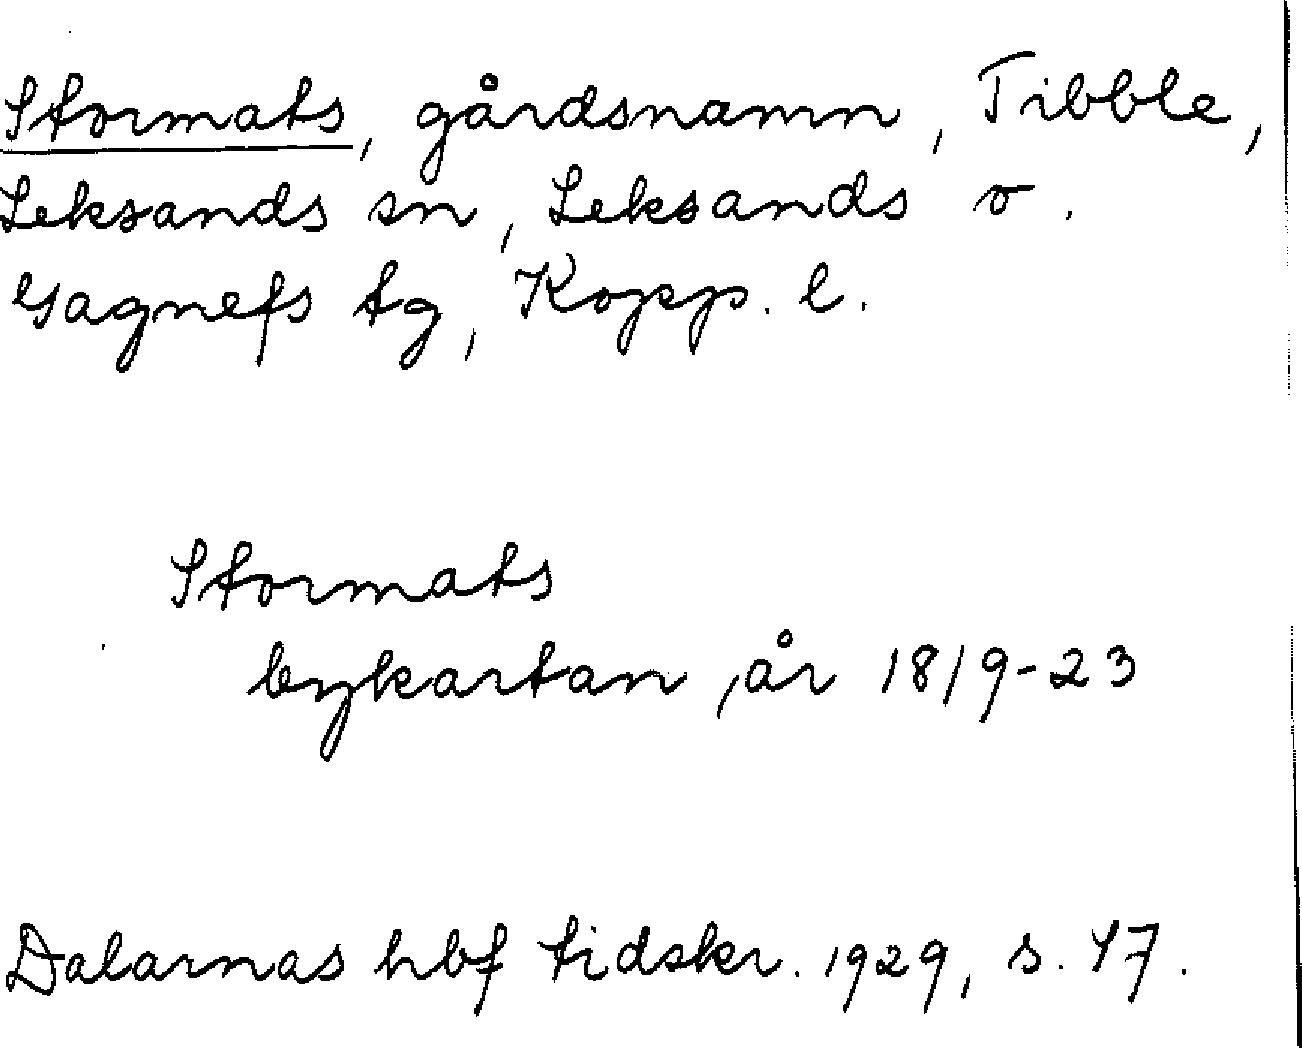 Stormats, gårdsnamn, Tibble,
Leksands sn, Leksands o.
Gagnefs tg, Kopp. l.
Stormats
bykartan, år 1819-23
Dalarnas hbf tidskr. 1929, s. 47.